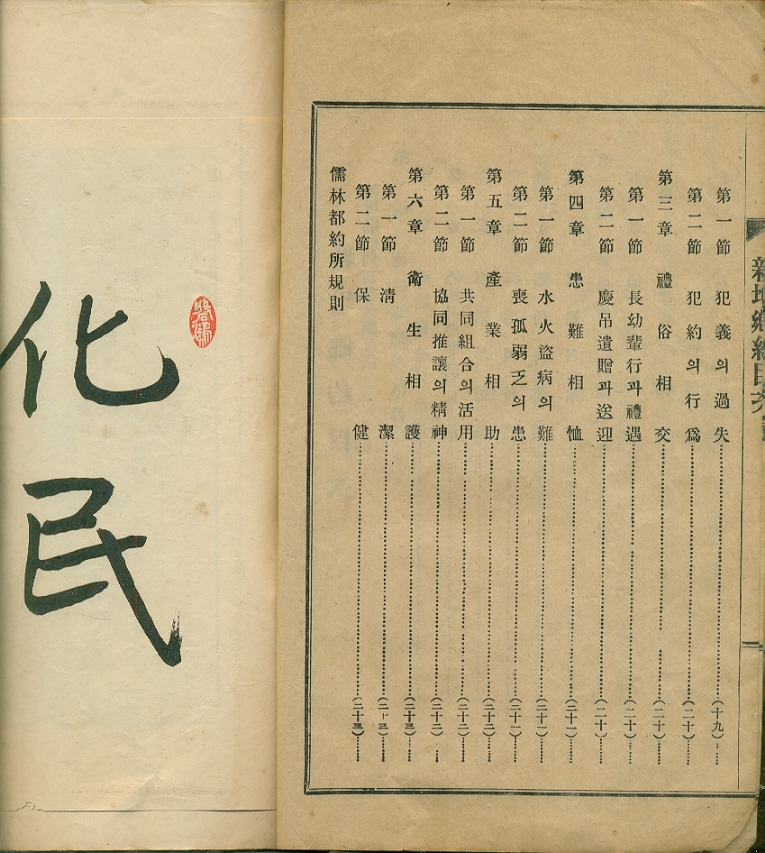 第一節 犯義의過失 (十九)
第二節 犯約의行爲 (二十)
第三章 禮俗相交 (二十)
第一節 長幼輩行과禮遇 (二十)
第二節 慶吊遺贈과送迎 (二十)
第四章 患難相恤 (二十一)
第一節 水火盜病의難 (二十一)
第二節 喪孤弱乏의患 (二十一)
第五章 產業相助 (二十二)
第一節 共同組合의活用 (二十二)
第二節 協同推讓의精神 (二十二)
第六章 衛生相護 (二十三)
第一節 淸潔 (二十三)
第二節 保健 (二十三)
儒林都約所規則
化民